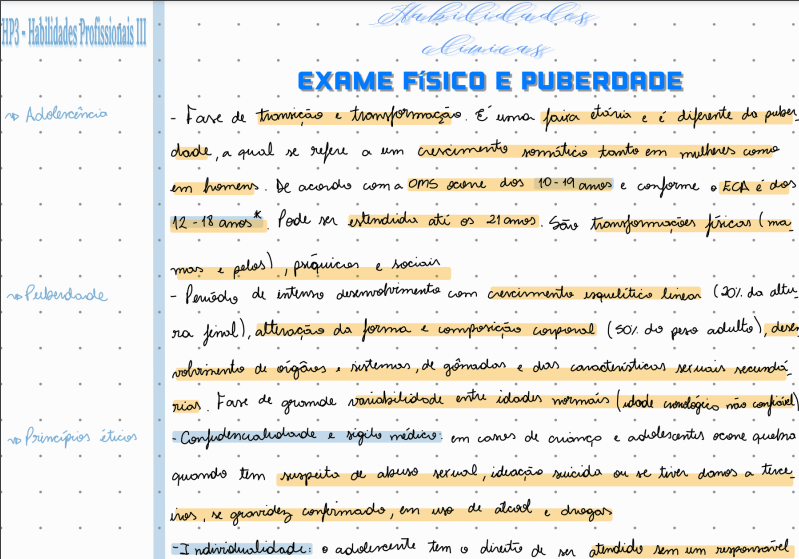 HP3 - Habilidades Profissionais III
Habilidades
clínicas
EXAME FÍSICO E PUBERDADE
Adolescência
- Fase de transição e transformação. É uma faixa etária e é diferente da puber-
dade, a qual se refere a um crescimento somático tanto em mulheres como
em homens. De acordo com a OMS ocorre dos 10-19 anos e conforme o ECA é dos
12-18 anos*. Pode ser estendida até os 21 anos. São transformações físicas (ma-
mas e pelos), psíquicas e sociais
Puberdade
- Período de intenso desenvolvimento com crescimento esquelético linear (20% da altu-
ra final), alteração da forma e composição corporal (50% do peso adulto), desen
volvimento de órgãos e sistemas, de gônadas e das características sexuais secundá-
rias. Fase de grande variabilidade entre idades normais (idade cronológica não confiável)
Princípios éticos
- Confidencialidade e sigilo médico: em casos de criança e adolescentes ocorre quebra
quando tem suspeita de abuso sexual, ideação suicida ou se tiver danos a terce-
iros, se gravidez confirmada, em uso de álcool e drogas
- Individualidade: o adolescente tem o direito de ser atendido sem um responsável